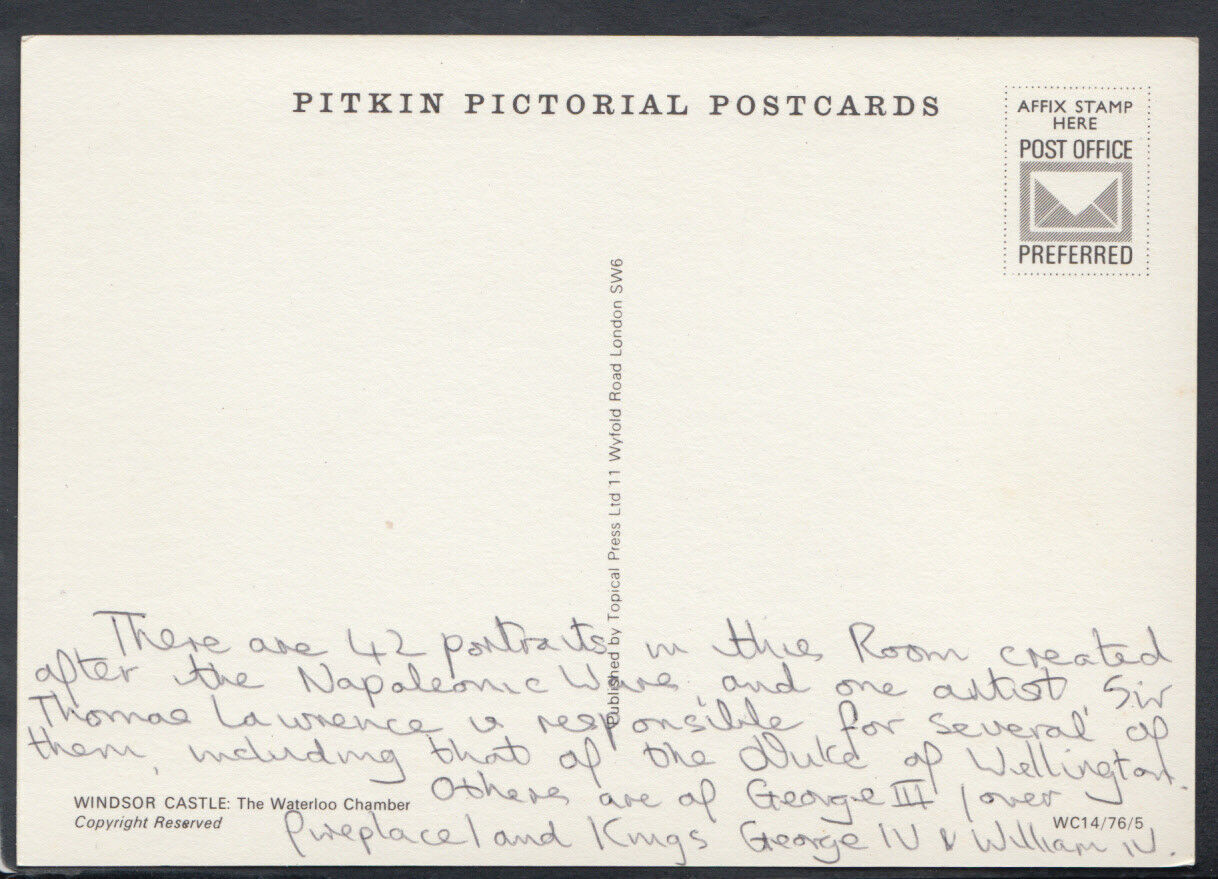 PITKIN PICTORIAL POSTCARDS
AFFIX STAMP
HERE
POST OFFICE
PREFERRED
Published by Topical Press Ltd 11 Wyfold Road London SW6
There are 42 portraits in this Room created
after the Napoleonic Wars, and one artist, Sir
Thomas Lawrence is responsible for several of
them, including that of the Duke of Wellington.
Others are of George III (over
fireplace) and Kings George IV & William IV.
WINDSOR CASTLE: The Waterloo Chamber
Copyright Reserved
WC14/76/5